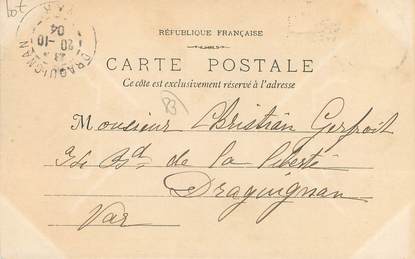 lot
RÉPUBLIQUE FRANÇAISE
CARTE POSTALE
Ce côté est exclusivement réservé à l'adresse
DRAGUIGNAN
20-10
04
VAR
83
Monsieur Christian
Bd de la liberté
Draguignan
Var